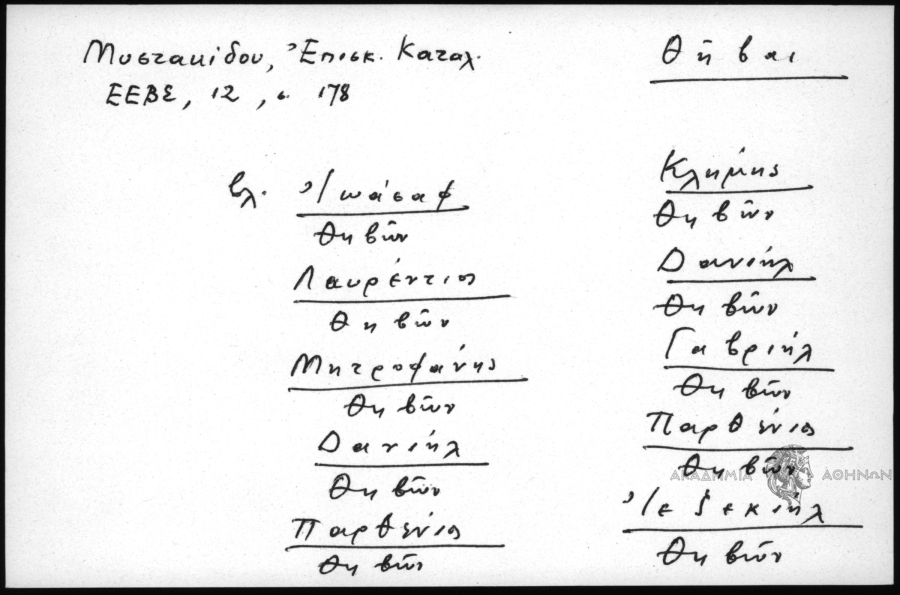 Θῆβαι
Μυστακίδου, Ἐπισκ. Καταλ.
ΕΕΒΣ, 12, σ. 178
βλ. Ἰωάσαφ
Θηβῶν
Λαυρέντιος
Θηβῶν
Μητροφάνης
Θηβῶν
Δανιήλ
Θηβῶν
Παρθένιος
Θηβῶν
Κλήμης
Θηβῶν
Δανιήλ
Θηβῶν
Γαβριήλ
Θηβῶν
Παρθένιος
Θηβῶν
Ἰεζεκιήλ
Θηβῶν
ΑΚΑΔΗΜΙΑ ΑΘΗΝΩΝ